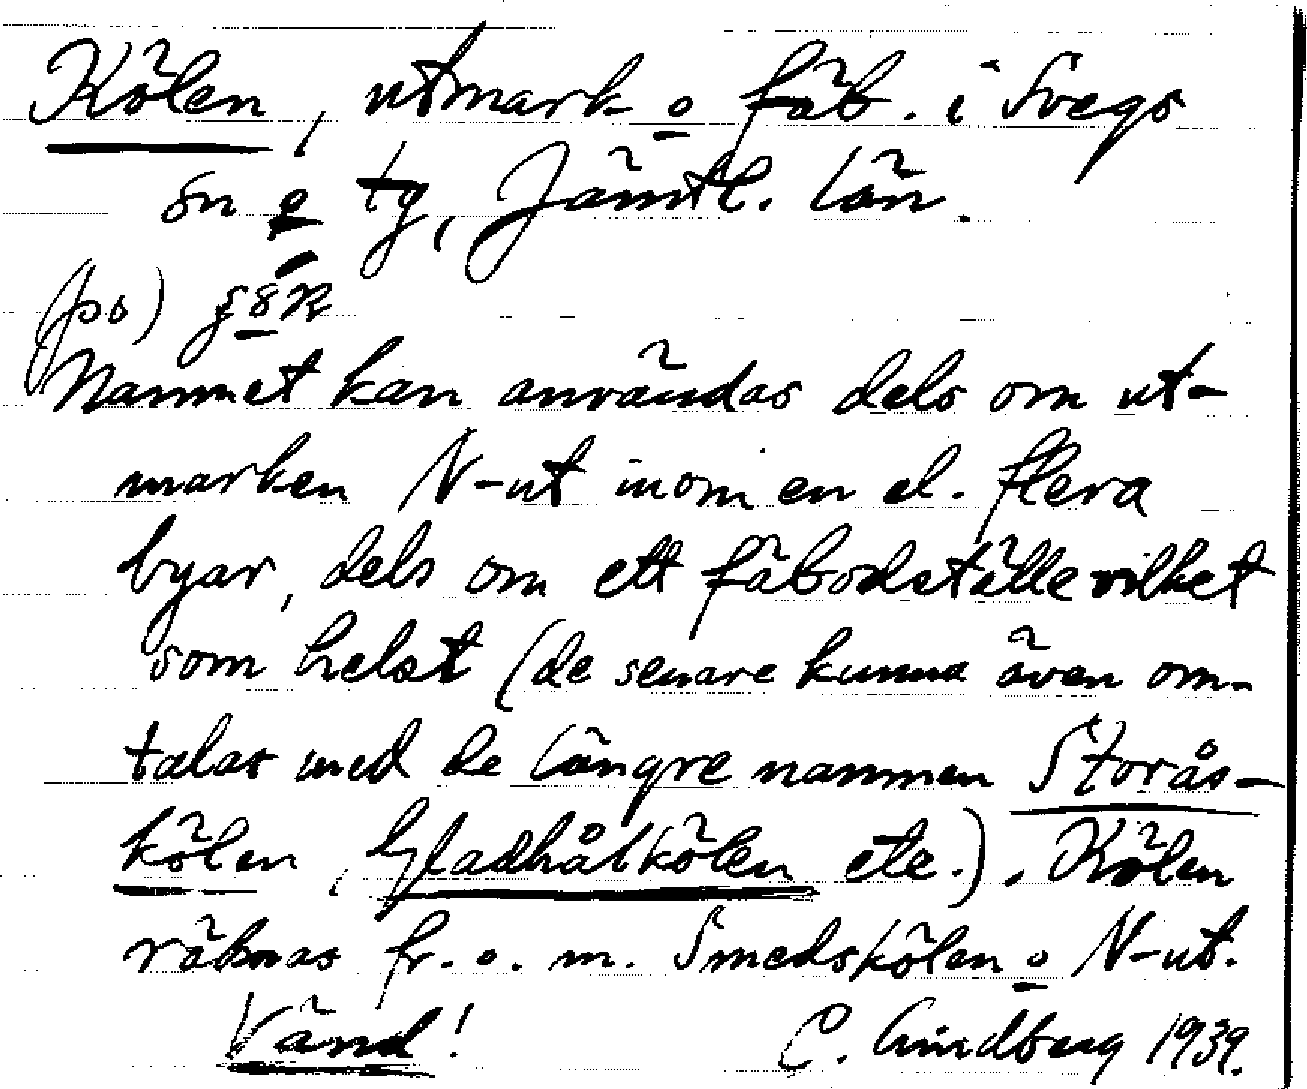 Kölen, utmark o fäb. i Svegs
sn o tg, Jämtl. län.
(på)
Namnet kan användas dels om ut-
marken N-ut inom en el. flera
byar, dels om ett fäbodställe vilket
som helst (de senare kunna även om-
talas med de längre namnen Storås-
kölen, Gladhåtkölen etc.). Kölen
räknas fr. o. m. Smedskölen o N-ut.
Vänd! C. Lindberg 1939.